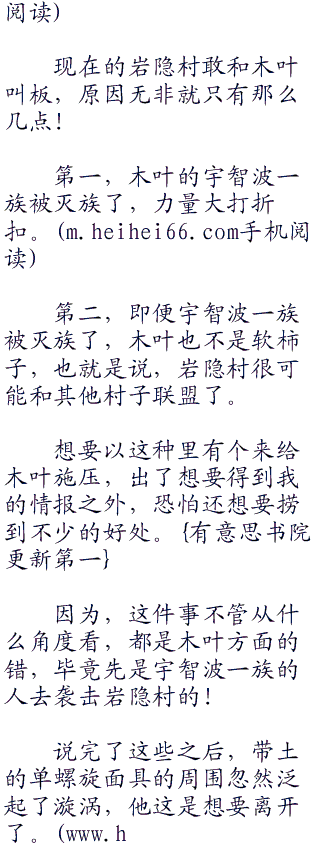 阅读)
现在的岩隐村敢和木叶
叫板，原因无非就只有那么
几点！
第一，木叶的宇智波一
族被灭族了，力量大打折
扣。(m.heihei66.com手机阅
读)
第二，即便宇智波一族
被灭族了，木叶也不是软柿
子，也就是说，岩隐村很可
能和其他村子联盟了。
想要以这种里有个来给
木叶施压，出了想要得到我
的情报之外，恐怕还想要捞
到不少的好处。{有意思书院
更新第一}
因为，这件事不管从什
么角度看，都是木叶方面的
错，毕竟先是宇智波一族的
人去袭击岩隐村的！
说完了这些之后，带土
的单螺旋面具的周围忽然泛
起了漩涡，他这是想要离开
了。(www.h